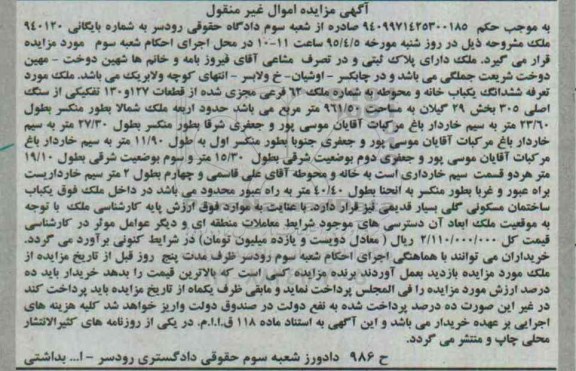 آگهی مزایده اموال غیر منقول
به موجب حکم ۹۴۰۹۹۷۱۴۲۵۳۰۰۱۸۵ صادره از شعبه سوم دادگاه حقوقی رودسر به شماره بایگانی ۹۴۰۱۲۰
ملک مشروحه ذیل در روز شنبه مورخه ۹۵/۴/۵ ساعت ۱۱-۱۰ در محل اجرای احکام شعبه سوم مورد مزایده
قرار می گیرد. ملک دارای پلاک ثبتی و در تصرف مشاعی آقای فیروز بامه و خانم ها شهین دوخت - مهین
دوخت شریعت جملگی می باشد و در چابکسر - اوشیان- خ ولابسر - انتهای کوچه ولابریک می باشد. ملک مورد
تعرفه ششدانگ یکباب خانه و محوطه به شماره ملک ۶۲ فرعی مجزی شده از قطعات ۱۲۷و۱۳۰ تفکیکی از سنگ
اصلی ۳۰۵ بخش ۲۹ گیلان به مساحت ۹۶۱/۵۰ متر مربع می باشد حدود اربعه ملک شمالا بطور منکسر بطول
۲۳/۶۰ متر به سیم خاردار باغ مرکبات آقایان موسی پور و جعفری شرقا بطور منکسر بطول ۲۷/۳۰ متر به سیم
خاردار باغ مرکبات آقایان موسی پور و جعفری جنوبا بطور منکسر اول به طول ۱۱/۹۰ متر به سیم خاردار باغ
مرکبات آقایان موسی پور و جعفری دوم بوضعیت شرقی بطول ۱۵/۳۰ متر و سوم بوضعیت شرقی بطول ۱۹/۱۰
متر هردو قسمت سیم خارداری است به خانه و محوطه آقای علی قاسمی و چهارم بطول ۲ متر سیم خارداریست
براه عبور و غربا بطور منکسر به انحنا بطول ۴۰/۴۰ متر به راه عبور محدود می باشد در داخل ملک فوق یکباب
ساختمان مسکونی گلی بسیار قدیمی نیز قرار دارد. با عنایت به موارد فوق ارزش پایه کارشناسی ملک با توجه
به موقعیت ملک ابعاد آن دسترسی های موجود شرایط معاملات منطقه ای و دیگر عوامل موثر در کارشناسی
قیمت کل ۲/۱۱۰/۰۰۰/۰۰۰ ریال ( معادل دویست و یازده میلیون تومان) در شرایط کنونی برآورد می گردد.
خریداران می توانند با هماهنگی اجرای احکام شعبه سوم رودسر ظرف مدت پنج روز قبل از تاریخ مزایده از
ملک مورد مزایده بازدید بعمل آوردند.برنده مزایده کسی است که بالاترین قیمت را بدهد خریدار باید ده
درصد ارزش مورد مزایده را فی المجلس پرداخت نماید و مابقی ظرف یکماه از تاریخ مزایده باید پرداخت کند
در غیر این صورت ده درصد پرداخت شده به نفع دولت در صندوق دولت واریز خواهد شد کلیه هزینه های
اجرایی بر عهده خریدار می باشد و این آگهی به استناد ماده ۱۱۸ ق.ا.ا.م. در یکی از روزنامه های کثیرالانتشار
محلی چاپ و منتشر می گردد.
ح ۹۸۶ دادورز شعبه سوم حقوقی دادگستری رودسر - ا... بداشتی